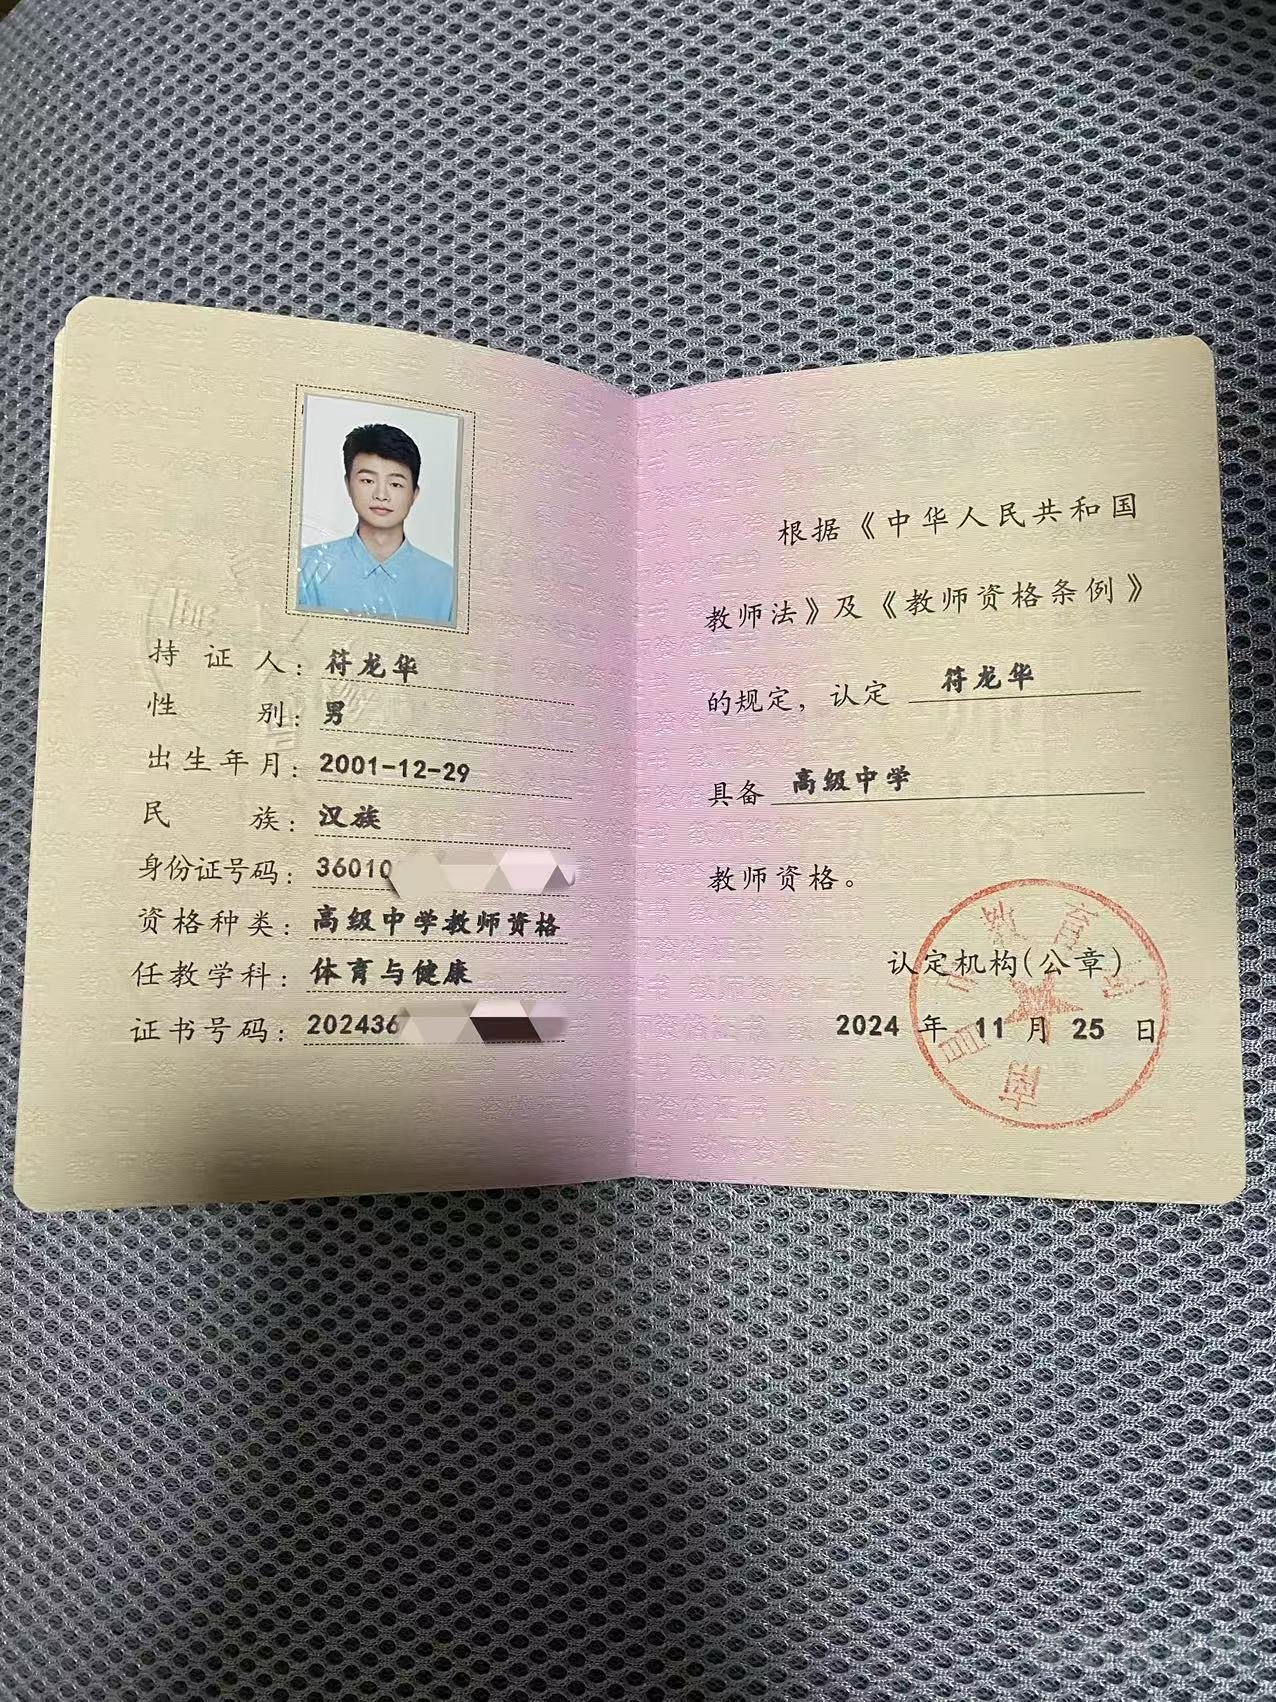 持证人：符龙华
性别：男
出生年月：2001-12-29
民族：汉族
身份证号码：36010
资格种类：高级中学教师资格
任教学科：体育与健康
证书号码：202436
根据《中华人民共和国
教师法》及《教师资格条例》
的规定，认定 符龙华
具备 高级中学
教师资格。
认定机构(公章)
2024 年 11 月 25 日
南昌市教育局